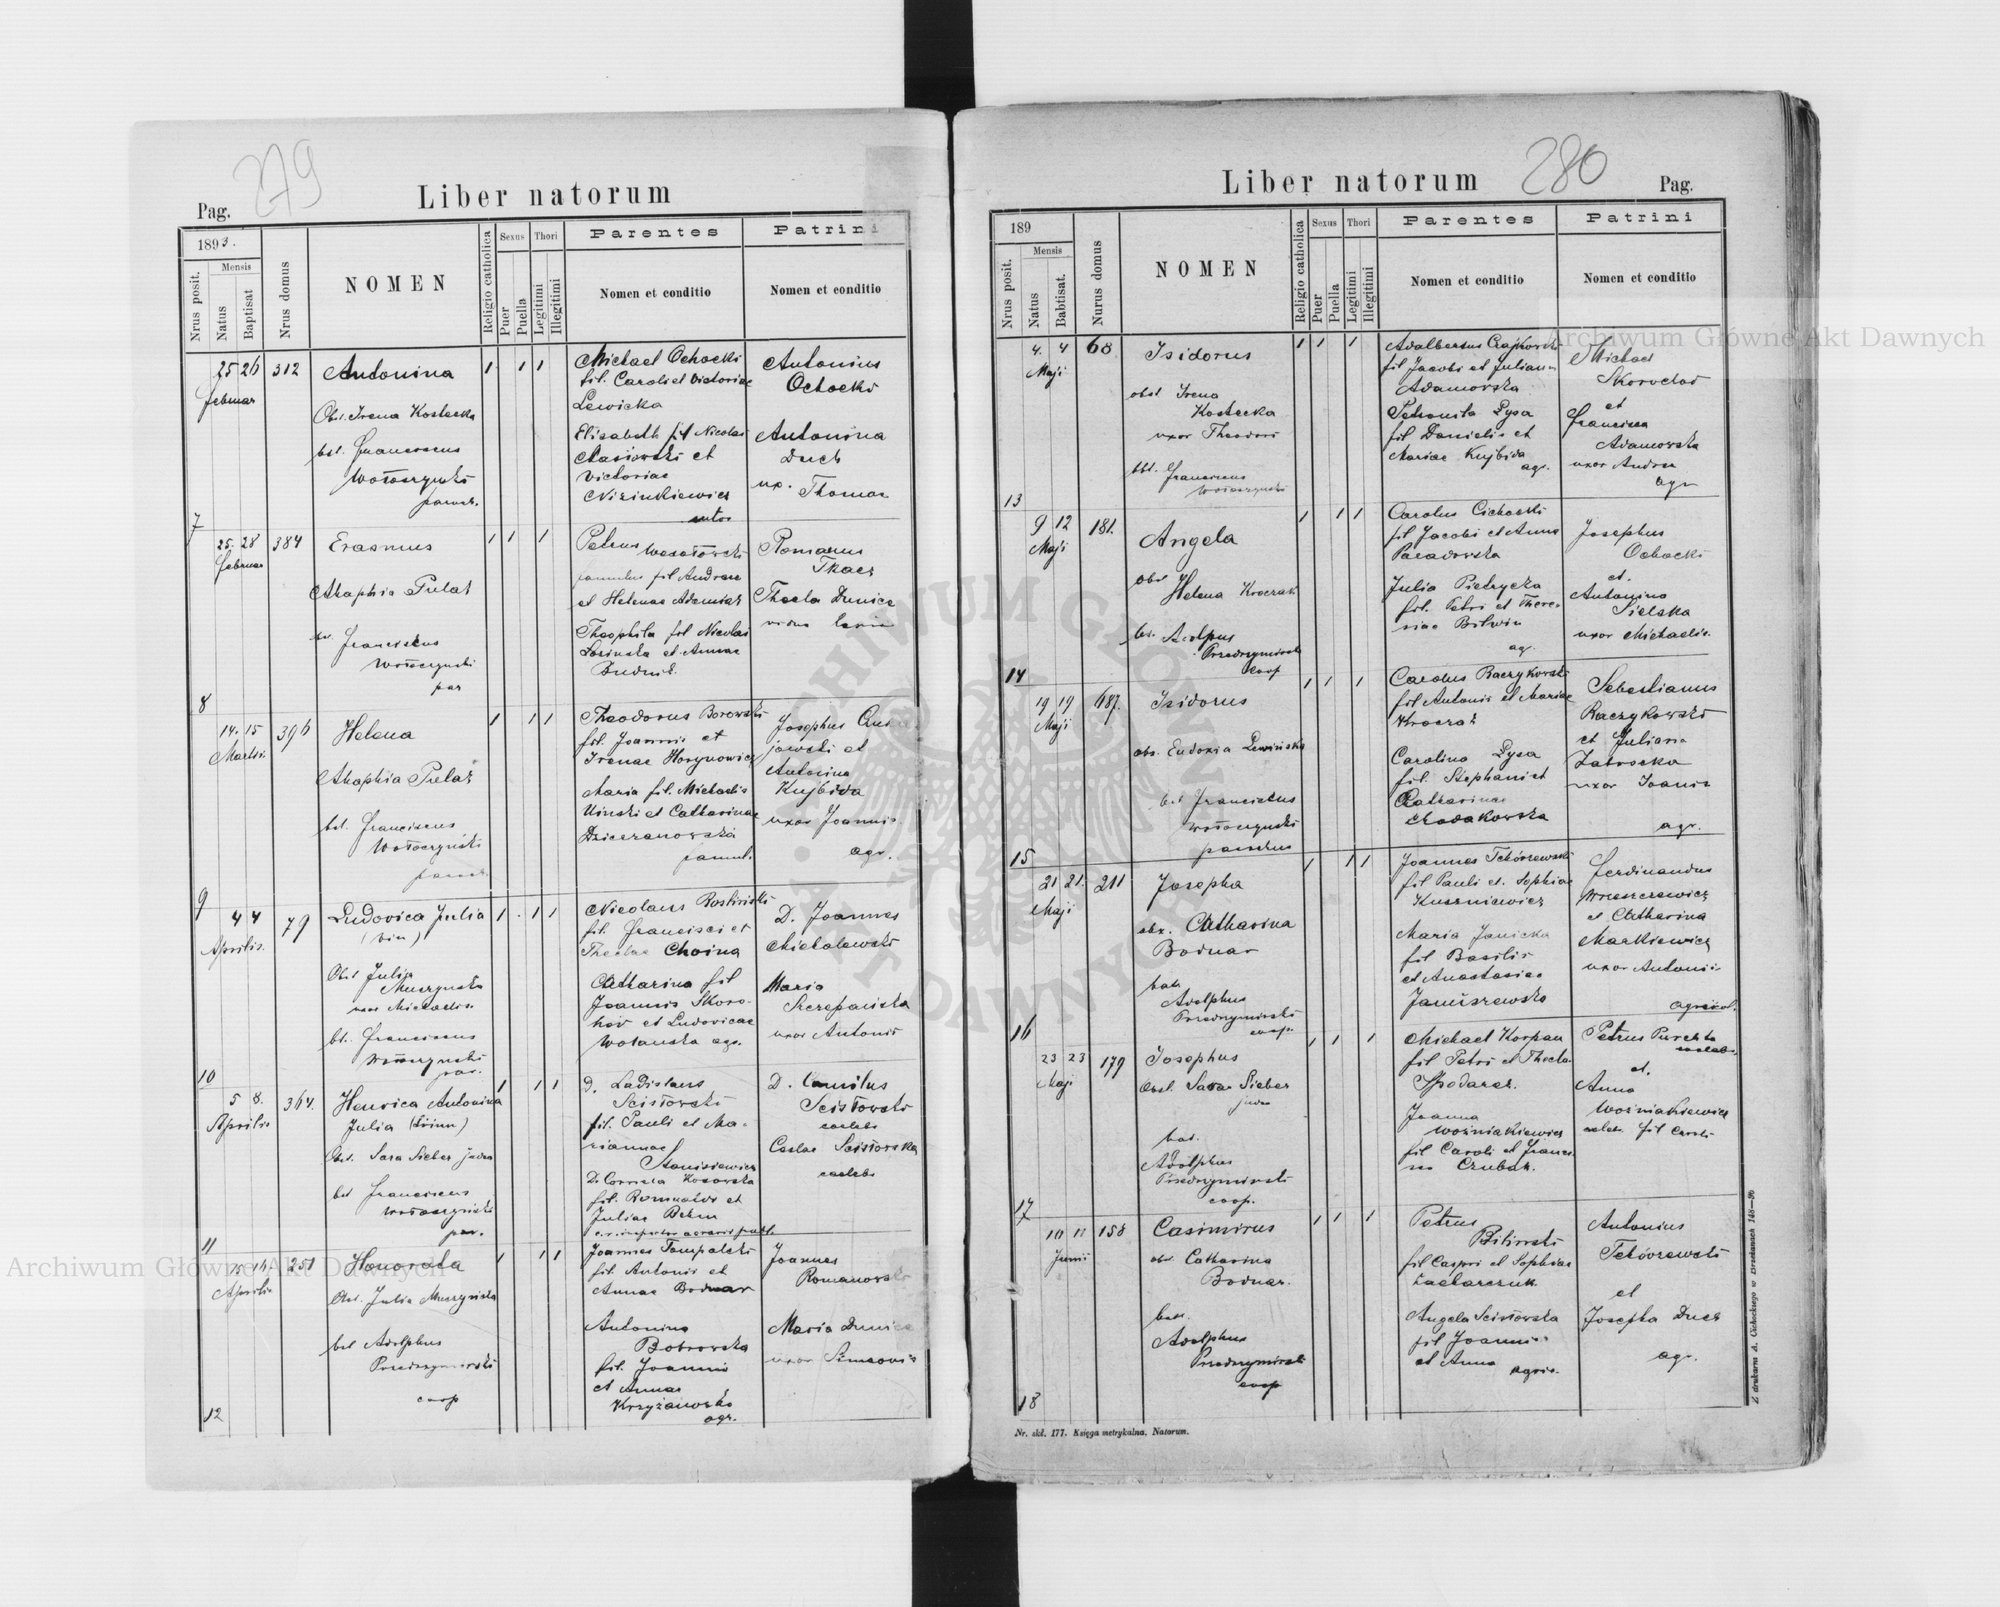 279
Pag.
Liber natorum
1893.
Nrus posit.
Mensis
Natus
Baptisat
Nrus domus
NOMEN
Religio catholica
Sexus
Puer
Puella
Thori
Legitimi
Illegitimi
Parentes
Nomen et conditio
Patrini
Nomen et conditio
7
25 26
februar
312
Antonina
Obst. Irena Kostecka
bst. Franciscus
Wołoszynski
paroch.
1 1 1
Michael Ochocki
fil. Caroli et Victoriae
Lewicka
Elisabeth fil Nicolai
et
Victoriae
Antonius
Ochocki
Antonina
Duch
ux. Thomae
8
25. 28
februar
384
Erasmus
Ahaphia Pulak
bst. Franciscus
Wołoszynski
par
1 1 1
Petrus
famulus fil Andreae
et Helenae
Theophila fil Nicolai
et Annae
Budnik
Romanus
Tkacz
Thecla Dunice
vidua
9
14. 15
Martii
396
Helena
Ahaphia Pulak
bst. Franciscus
Wołoszynski
paroch.
1 1 1
Theodorus Borowski
fil. Joannis et
Irenae Horynowicz
Maria fil. Michaelis
et Catharinae
Dziczanowska
famul.
Josephus
et
Antonina
Kujbida
uxor Joannis
agr.
10
4 4
Aprilis.
79
Ludovica Julia
(bin)
Obst Julia
Muczynska
uxor Michaelis
bt. Franciscus
Wołoszynski
par.
1 1 1
Nicolaus
fil. Francisci et
Theclae Choina
Catharina fil
Joannis Skoro-
hod et Ludovicae
Wolanska agr.
D. Joannes
Michalewski
Maria
Szczepanska
uxor Antonii
11
5 8.
Aprilis
364.
Henrica Antonina
Julia (trium)
Obst. Sara Sieber judea
bst Franciscus
Wołoszynski
par.
1 1 1
D. Ladislaus
Scisłowski
fil. Pauli et Ma-
riannae
Stanisiewicz
D. Cornela Kosowska
fil. Romualdi et
Juliae
D. Camilus
Scisłowski
caelebs
Ceslae Scisłowska
caelebs
12
15. 16.
Aprilis
251
Honorata
Obst. Julia Muczynska
bst Adolphus
Przedrzymirski
coop
1 1 1
Joannes Tompalski
fil. Antonii et
Annae Bodnar
Antonina
Bobrowska
fil. Joannis
et Annae
Krzyżanowska
agr.
Joannes
Romanowski
Maria Dunice
uxor Simeonis
Liber natorum
280
Pag.
189
Nrus posit.
Mensis
Natus
Babtisat.
Nurus domus
NOMEN
Religio catholica
Sexus
Puer
Puella
Thori
Legitimi
Illegitimi
Parentes
Nomen et conditio
Patrini
Nomen et conditio
13
4. 4
Maji
68
Isidorus
obst Irena
Kostecka
uxor Theodori
bst. Franciscus
Wołoszynski
1 1 1
Adalbertus Czajkowski
fil Jacobi et Julianna
Adamowska
Petronila Łysa
fil Danielis et
Mariae Kujbida
agr.
Michael
Skorochod
et
Francisca
Adamowska
uxor Andrea
agr
14
9 12
Maji
181.
Angela
obst
Helena Kroczak
bst. Adolpus
Przedrzymirski
coop
1 1 1
Carolus Cichocki
fil Jacobi et Anna
Paradowska
Julia Pietrycka
fil. Petri et There-
siae Bilwin
ag.
Josephus
Ochocki
et.
Antonina
Sielska
uxor Michaelis.
15
19 19
Maji
687.
Isidorus
obs. Eudoxia Lewinska
bst Franciscus
Wołoszynski
parochus
1 1 1
Carolus Raczykowski
fil Antonii et Mariae
Kroczak
Carolina Łysa
fil. Stephani et
Catharinae
Chodakowska
Sebastianus
Raczykowski
et Juliana
Zatrocka
uxor Joanis
agr.
16
21 21.
Maji
211
Josepha
obx. Catharina
Bodnar
bat.
Adolphus
Przedrzymirski
coop.
1 1 1
Joannes Tchórzewski
fil Pauli et. Sophiae
Kuszniewicz
Maria Janicka
fil Basilii
et Anastasiae
Januszewska
Ferdinandus
Wroszczewicz
et Catharina
Markiewicz
uxor Antonii
agricol.
17
23 23
Maji
179
Josephus
Obst. Sara Sieber
judea
bat.
Adolphus
Przedrzymirski
coop.
1 1 1
Michael Korpan
fil Petri et Thecla
Spodarek.
Joanna
Woźniakiewicz
fil Caroli et Francis-
na Czubak.
Petrus
caelebs.
et.
Anna
Woźniakiewicz
caeleb. fil Caroli
18
10 11
Junii
158
Casimirus
obs. Catharina
Bodnar.
bat.
Adolphus
Przedrzymirski
coop
1 1 1
Petrus
Biliński
fil Caspri et Sophiae
Zacharczuk
Angela Scisłowska
fil Joannis
et Anna
agric.
Antonius
Tchórzewski
et
Josepha Duch
agr.
Nr. skł. 177. Księga metrykalna. Natorum.
Z drukarni A. Cichockiego w Brzeżanach 148—96
Archiwum Główne Akt Dawnych
Archiwum Główne Akt Dawnych
ARCHIWUM GŁÓWNE AKT DAWNYCH